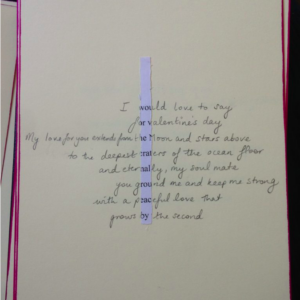 I would love to say
for valentine's day
My love for you extends from the Moon and stars above
to the deepest craters of the ocean floor
and eternally, my soul mate
you ground me and keep me strong
with a peaceful love that
grows by the second